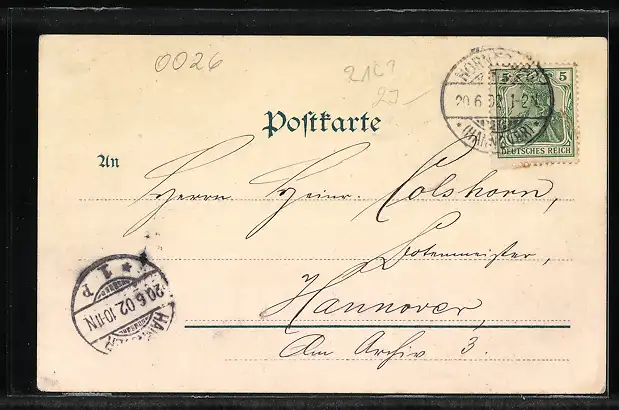 0026
Postkarte
5 5
20.6.02. 1-2N
(HANNOVER)
DEUTSCHES REICH
An
Herrn Heinr. Colshorn,
Botenmeister,
Hannover,
Am Archiv 3.
HANNOVER
20.6.02.10-11N
1
P